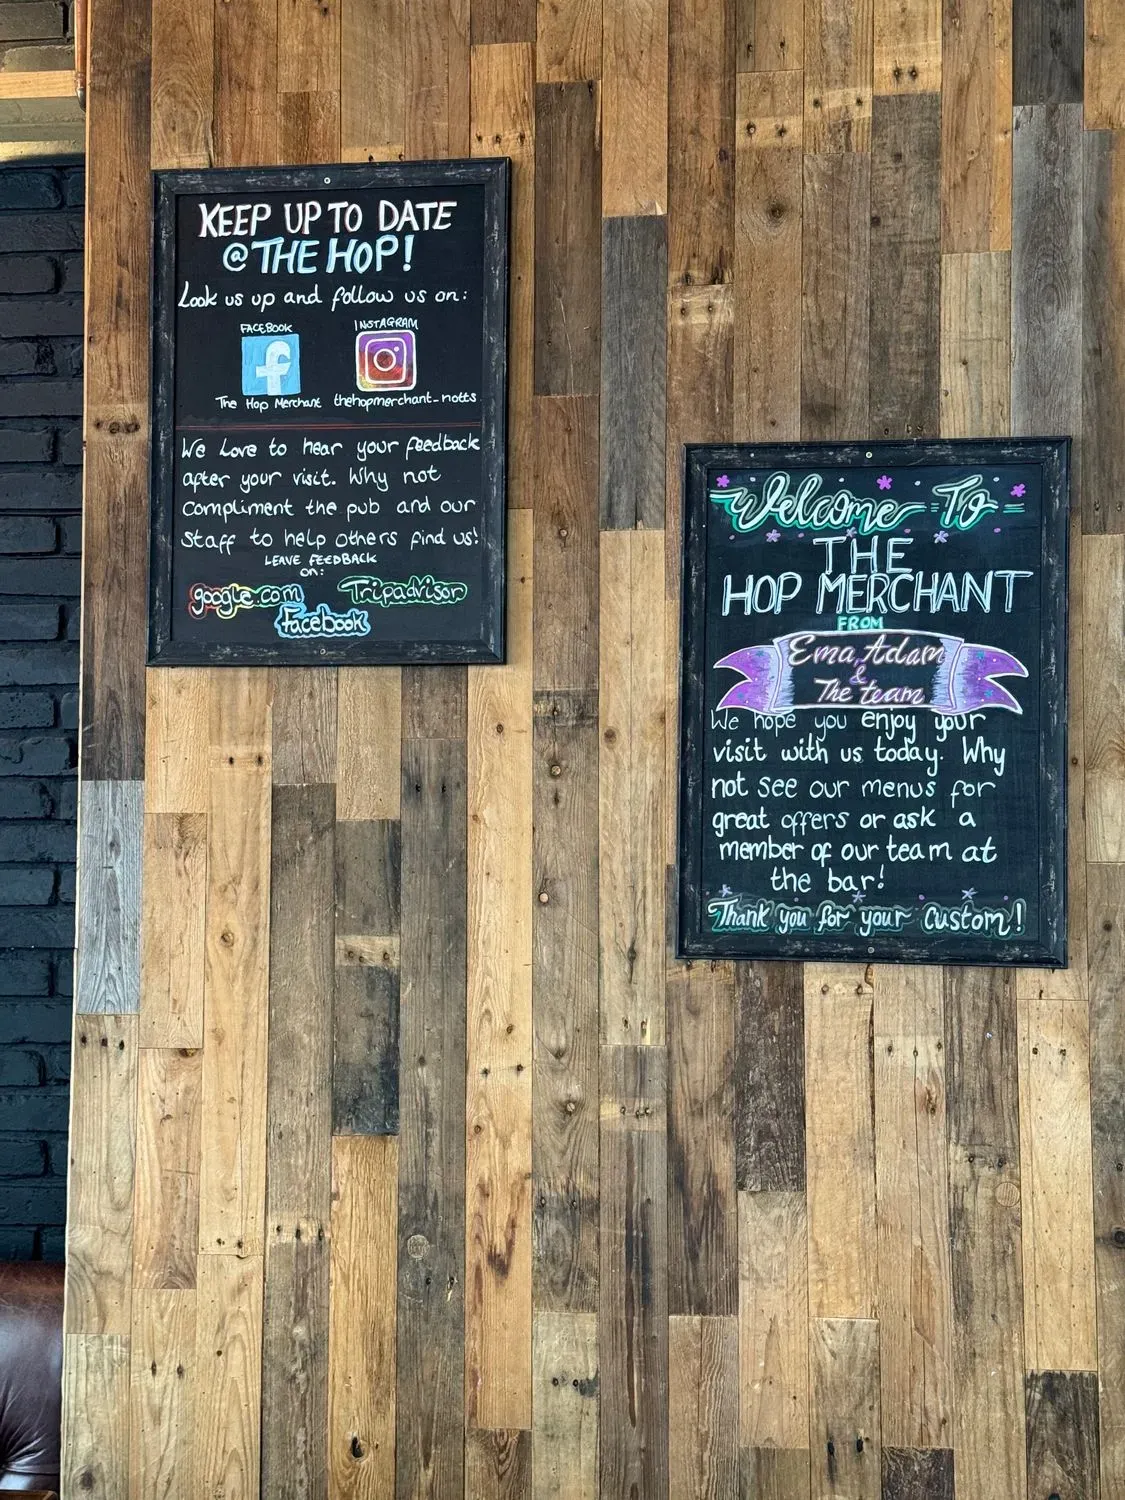 KEEP UP TO DATE
@ THE HOP!
Look us up and follow us on:
FACEBOOK
INSTAGRAM
The Hop Merchant
thehopmerchant_notts
We Love to hear your feedback
after your visit. Why not
Compliment the pub and our
Staff to help others find us!
LEAVE FEEDBACK
on:
google.com
Tripadvisor
Facebook
Welcome To
THE
HOP MERCHANT
FROM
Ema, Adam
&
The team
We hope you enjoy your
visit with us today. Why
not see our menus for
great offers or ask a
member of our team at
the bar!
Thank you for your custom!